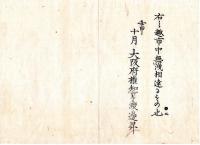 右之趣市中無洩相達るもの也
十月 大阪府権知事渡邊昇